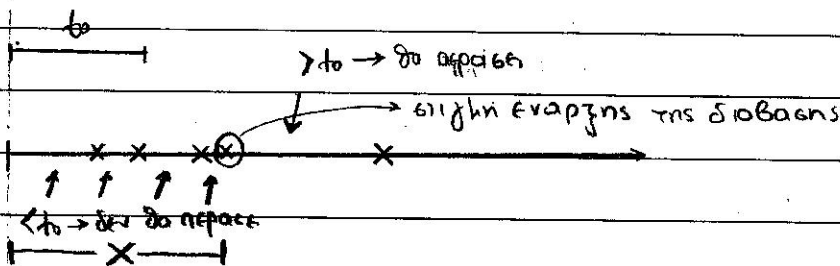 to
>to → θα περάσει
στιγμή έναρξης της διάβασης
<to → δεν θα περάσει
X